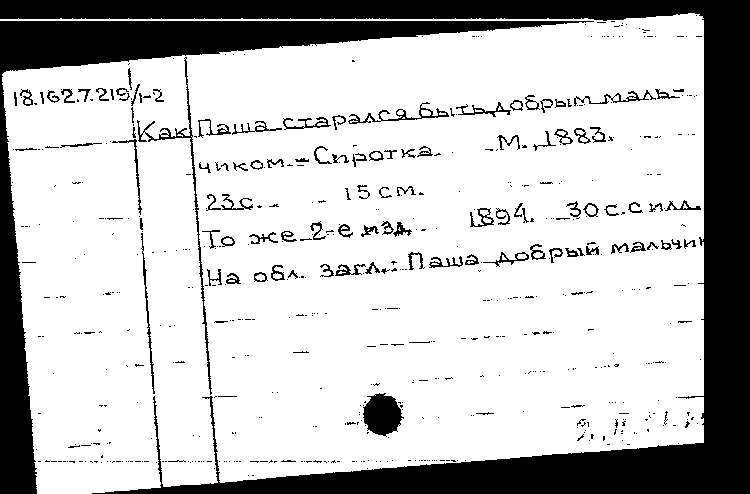 18.162.7.219/1-2
Как Паша старался быть добрым маль-
чиком. - Сиротка. М., 1883.
23 с. 15 см.
То же 2-е изд. 1894. 30 с. с илл.
На обл. загл.: Паша добрый мальчик